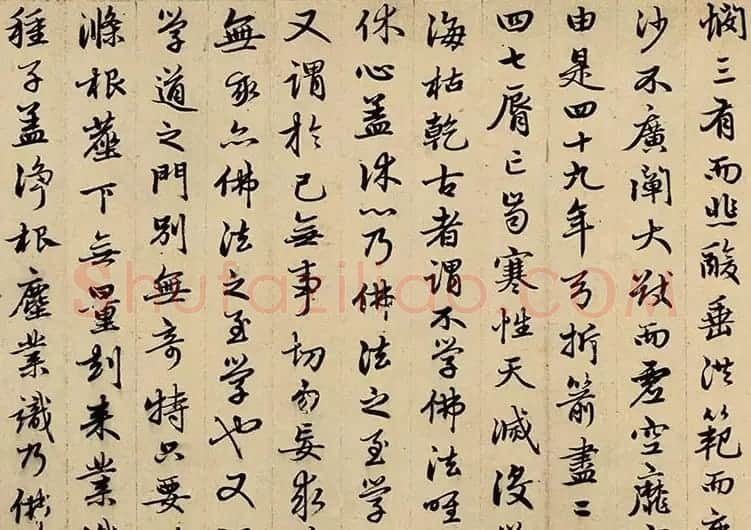 憫三有而悲酸垂洪範而
沙不廣闡大教而虛空靡
由是四十九年弓折箭盡二
四七脣亡齒寒性天滅沒
海枯乾古者謂不学佛法唯
休心蓋休心乃佛法之至学
又謂於己無事切勿妄求
無求亦佛法之至学也又
学道之門別無奇特只要
滌根塵下無量劫来業
種子蓋淨根塵業識乃佛
Shufaziliao.COM